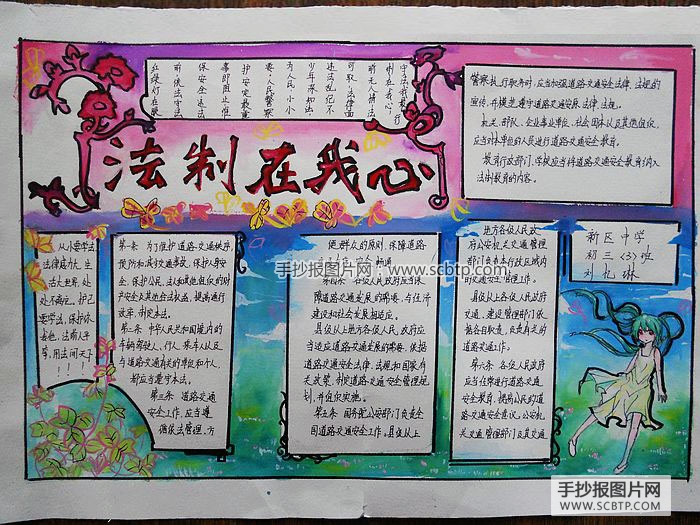 守法我最行
法制在我心
警察执行职务时，应当加强道路交通安全法律、法规的
宣传，并模范遵守道路交通安全法律、法规。
机关、部队、企业事业单位、社会团体以及其他组织，
应当对本单位的人员进行道路交通安全教育。
教育行政部门、学校应当将道路交通安全教育纳入
法制教育的内容。
从小要学法
第一条 为了维护道路交通秩序，
预防和减少交通事故，保护人身安
全，保护公民、法人和其他组织的财
产安全及其他合法权益，提高通行
效率，制定本法。
第二条 中华人民共和国境内的
车辆驾驶人、行人、乘车人以及
与道路交通有关的单位和个人，
都应当遵守本法。
第三条 道路交通
安全工作，应当遵
循依法管理、方
便群众的原则，保障道路
第四条 各级人民政府应当保
障道路交通
建设和社会发展相适应。
县级以上地方各级人民政府
应当适应道路交通发展的需要，依据
道路交通安全法律、法规和国家有
关政策，制定道路交通安全管理规
划，并组织实施。
第五条 国务院公安部门负责全
国道路交通安全工作。县级以上
地方各级人民政
府公安机关交通管理
部门负责本行政区域内
的道路交通安全管理工作。
县级以上各级人民政府
交通、建设管理部门依据
各自职责，负责有关的
道路交通工作。
第六条 各级人民政府
应当经常进行道路交通
安全教育，提高公民的道
路交通安全意识。公安机
关交通管理部门及其交通
新区中学
初三（3）班
手抄报图片网-www.scbtp.com
手抄报图片网
WWW.SCBTP.COM